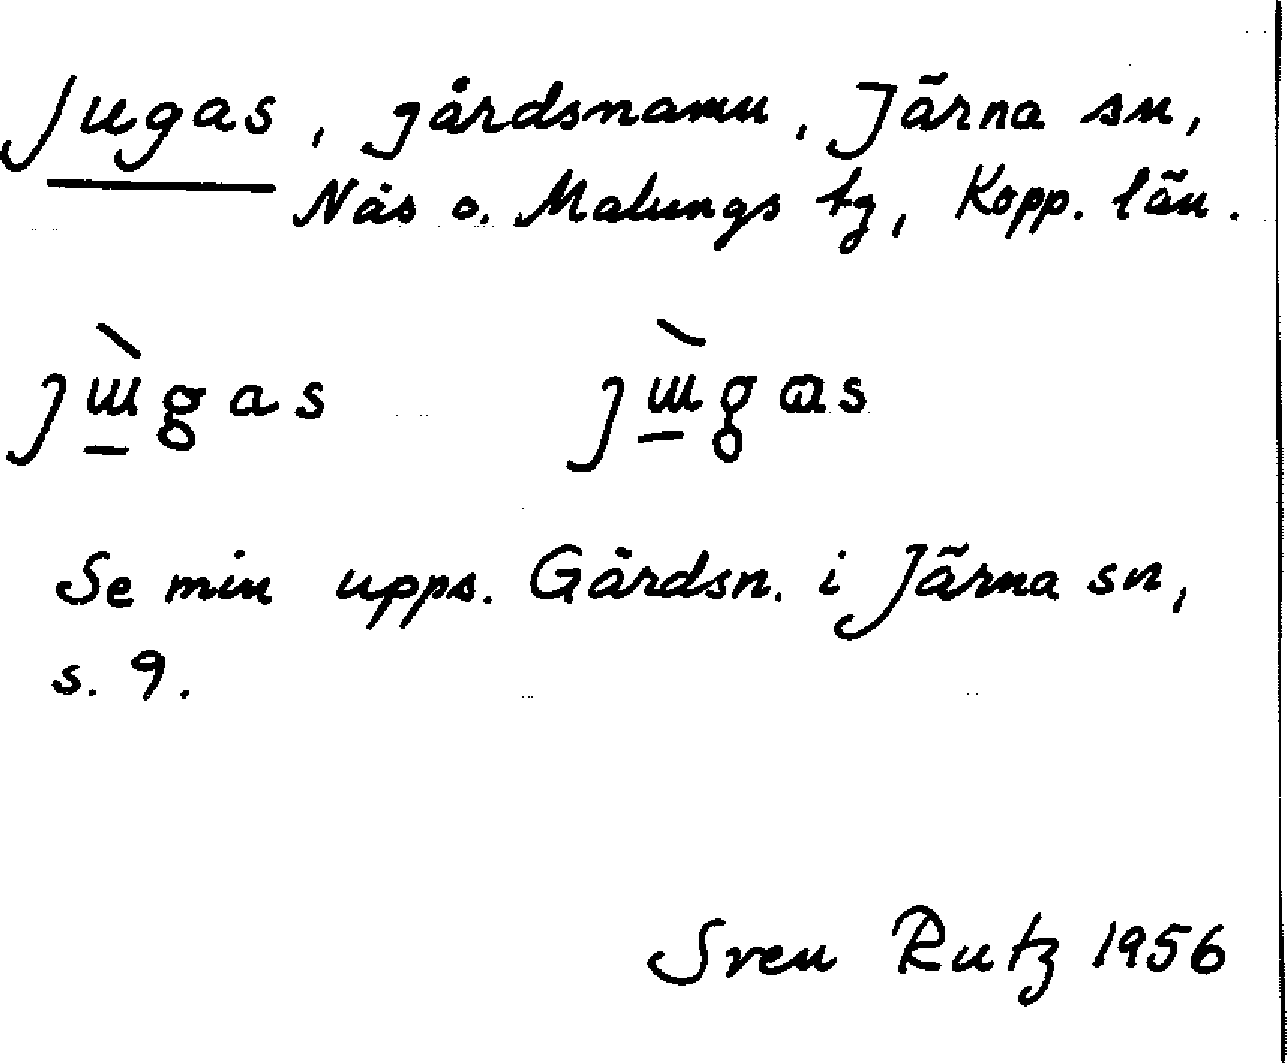 Jugas, gårdsnamn, Järna sn,
Näs o. Malungs tg, Kopp. län.
jɯ̠̀gas jɯ̠̀gɑs
Se min upps. Gårdsn. i Järna sn,
s. 9.
Sven Rutz 1956